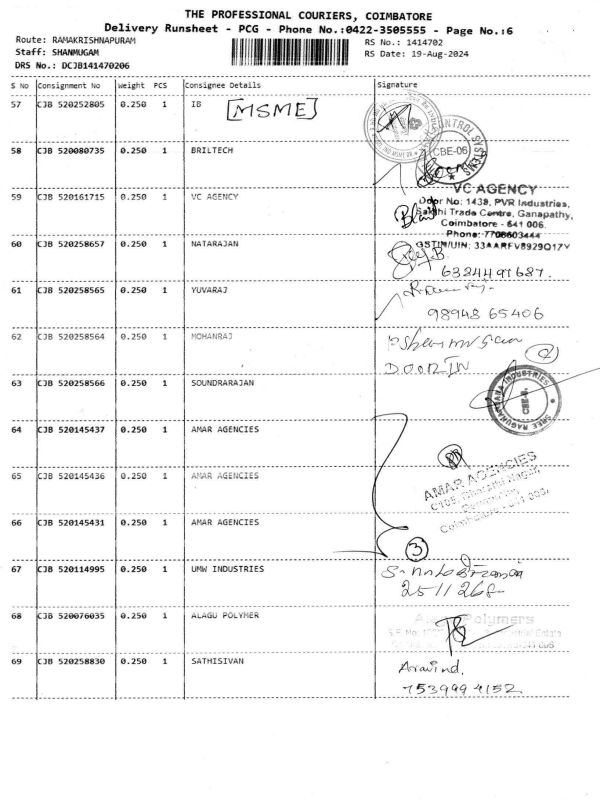 THE PROFESSIONAL COURIERS, COIMBATORE
Delivery Runsheet - PCG - Phone No.:0422-3505555 - Page No.:6
Route: RAMAKRISHNAPURAM
RS No.: 1414702
Staff: SHANMUGAM
RS Date: 19-Aug-2024
DRS No.: DCJB141470206
S No Consignment No Weight PCS Consignee Details Signature
57 CJB 520252805 0.250 1 IB [MSME]
58 CJB 520080735 0.250 1 BRILTECH CBE-06
59 CJB 520161715 0.250 1 VC AGENCY
VC AGENCY
Door No: 1438, PVR Industries,
Sakthi Trade Centre, Ganapathy,
Coimbatore - 641 006.
Phone: 7708603444
GSTIN/UIN: 33AARFV8929Q17V
60 CJB 520258657 0.250 1 NATARAJAN
6324491687.
61 CJB 520258565 0.250 1 YUVARAJ
98948 65406
62 CJB 520258564 0.250 1 MOHANRAJ
DOORIN
63 CJB 520258566 0.250 1 SOUNDRARAJAN
SREE RAGUNANDANA INDUSTRIES
64 CJB 520145437 0.250 1 AMAR AGENCIES
65 CJB 520145436 0.250 1 AMAR AGENCIES
AMAR AGENCIES
C105, Bharathi Nagar,
66 CJB 520145431 0.250 1 AMAR AGENCIES
3
67 CJB 520114995 0.250 1 UMW INDUSTRIES
2511268
68 CJB 520076035 0.250 1 ALAGU POLYMER
Polymers
69 CJB 520258830 0.250 1 SATHISIVAN
Aravind.
7539994152